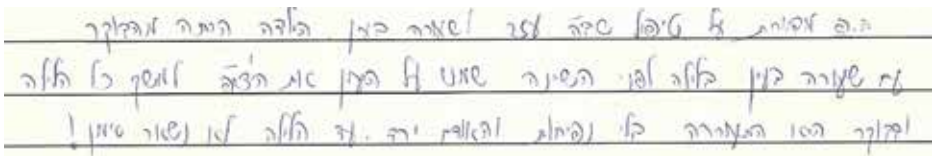 ה.פ מדווחת על טיפול שבה עזר לשעורה בעין. הילדה היתה מהבוקר
עם שעורה בעין בלילה לפני השינה שמנו על העין את לכל הלילה
ובבוקר היא התעוררה בלי נפיחות והאודם ירד. עד הלילה לא נשאר סימן!